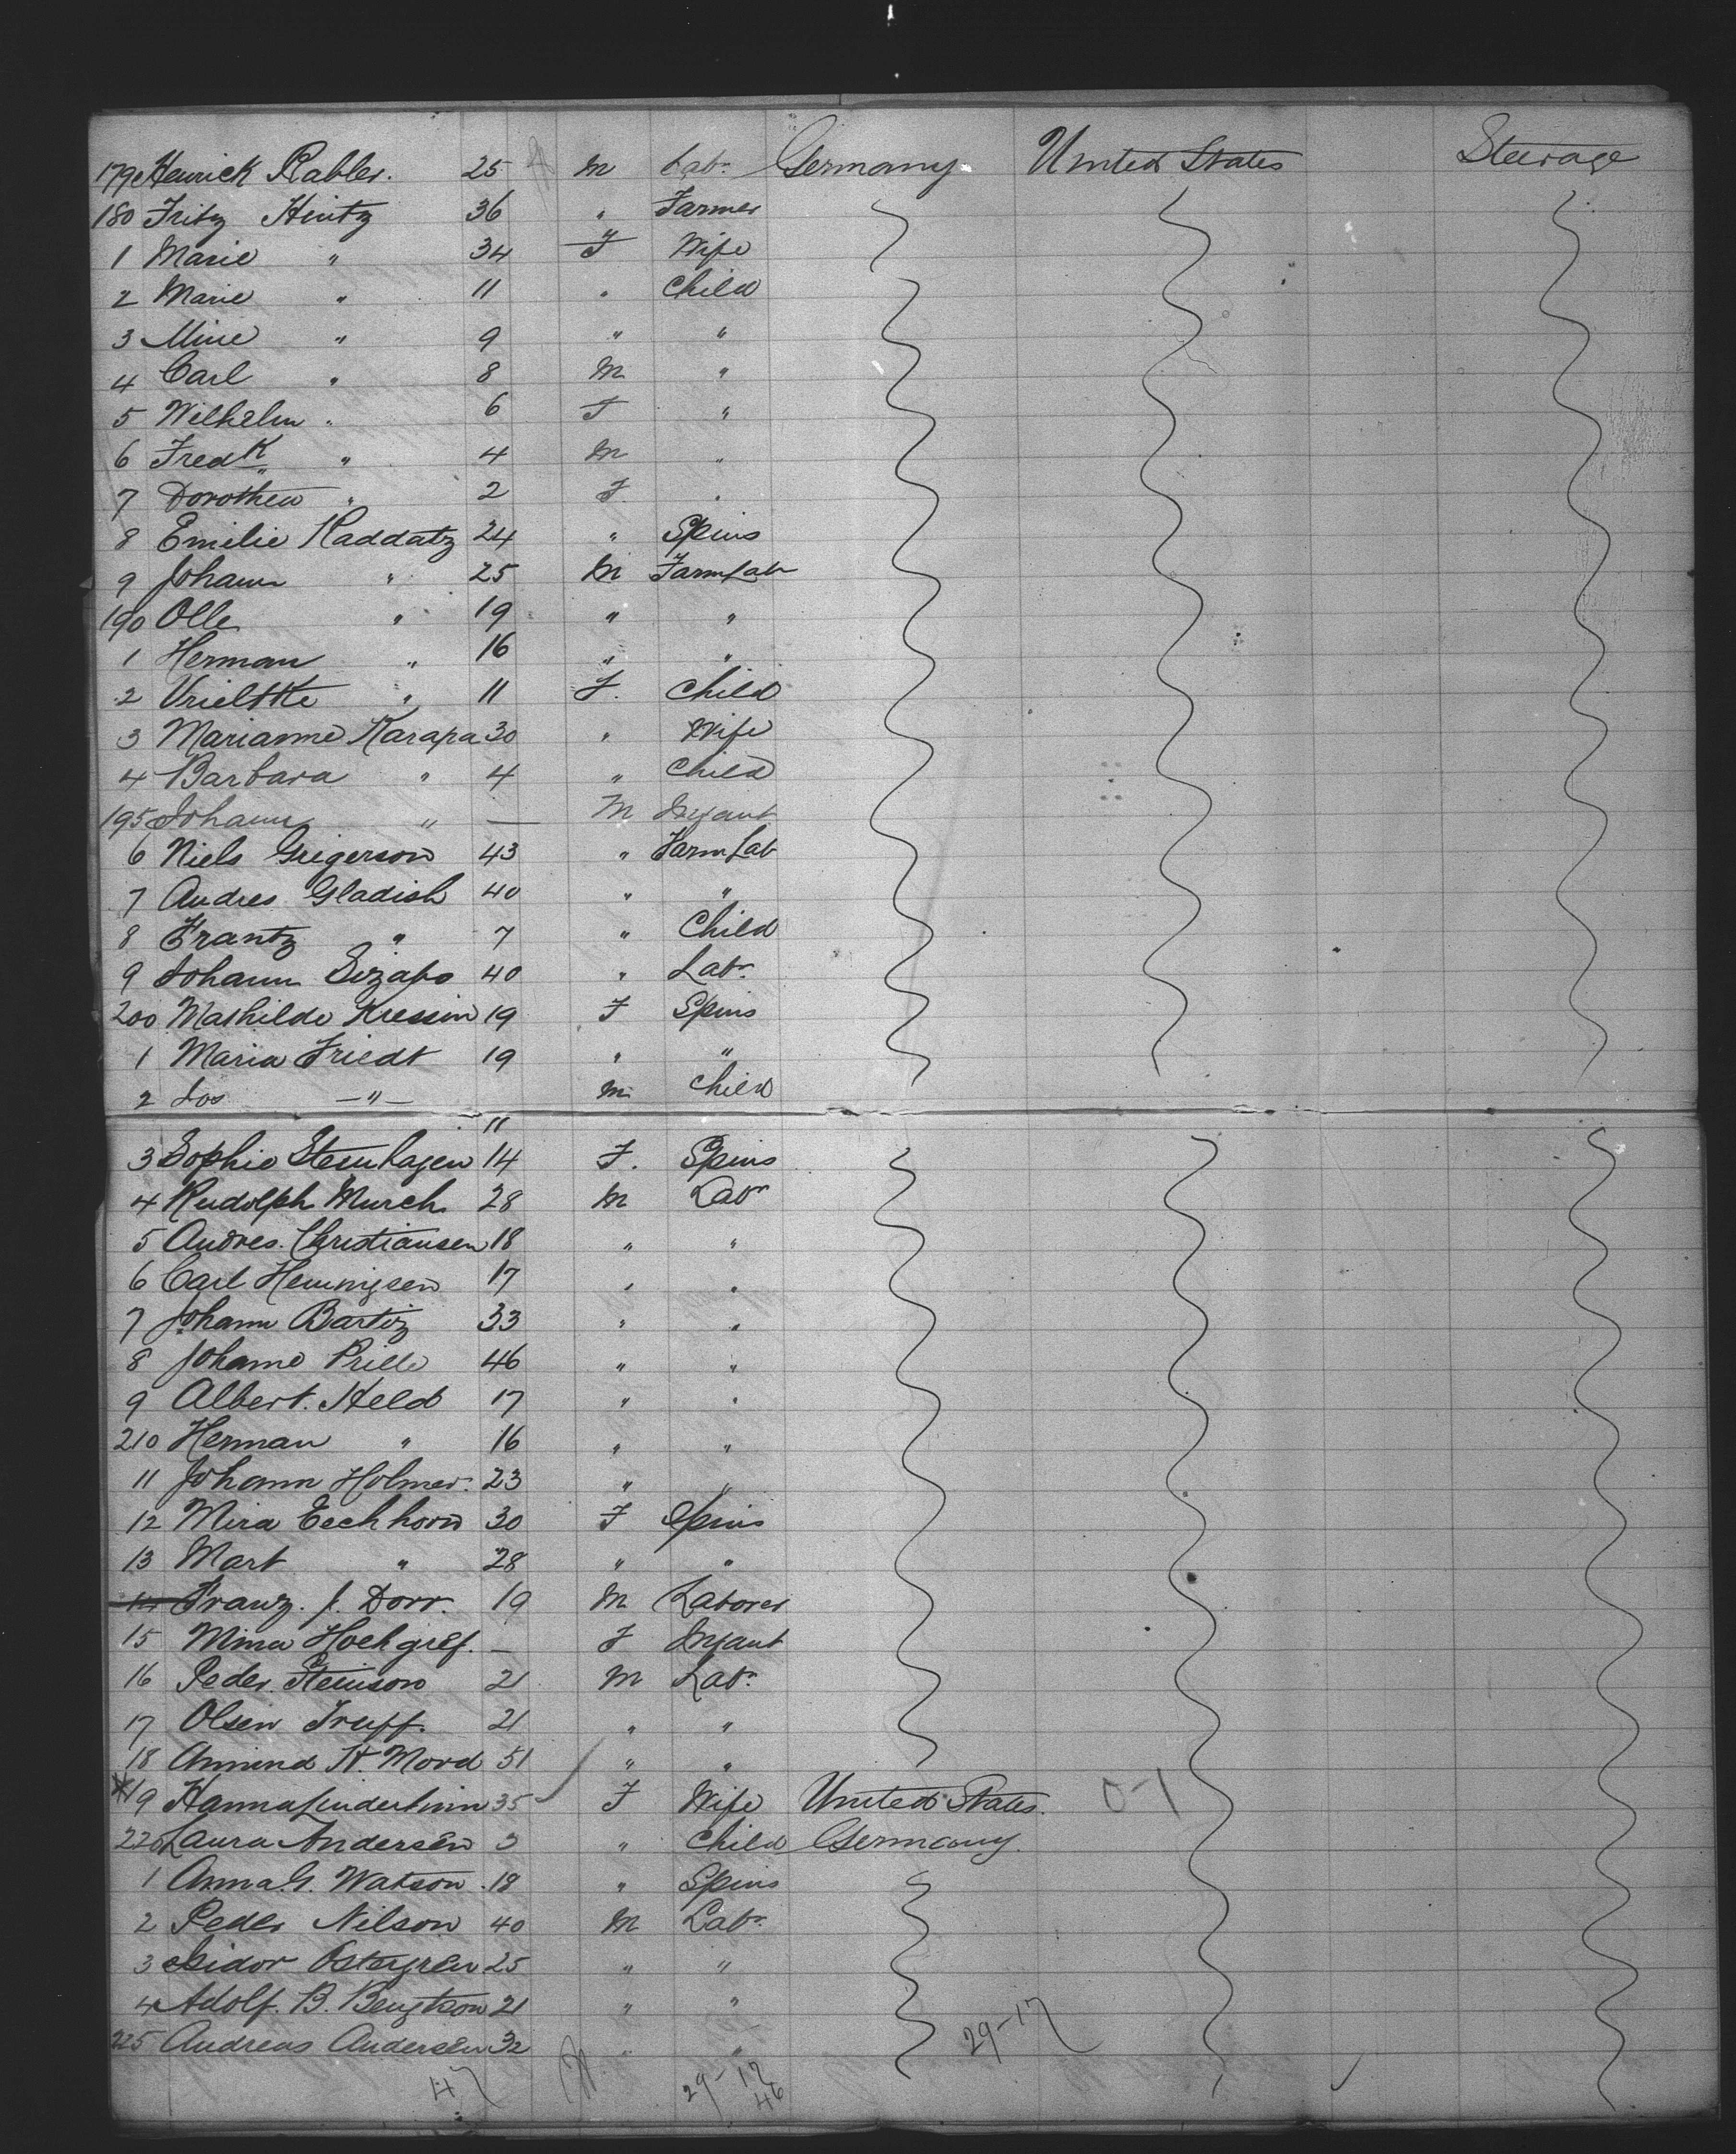 179 Henrick Rabler. 25 M Labr. Germany United States Steerage
180 Fritz Hintz 36 " Farmer
1 Marie " 34 F Wife
2 Marie " 11 " Child
3 Mine " 9 " "
4 Carl " 8 M "
5 Wilhelm " 6 F "
6 Fredk " 4 M "
7 Dorothea " 2 F "
8 Emilie Raddatz 24 " Spins
9 Johann " 25 M Farm Lab
190 Olle " 19 " "
1 Herman " 16 " "
2 " 11 F. Child
3 Marianne Karapa 30 " Wife
4 Barbara " 4 " Child
195 Johann " — M Infant
6 Niels Grigerson 43 " Farm Lab
7 Andres Gladish 40 " "
8 Frantz " 7 " Child
9 Johann 40 " Labr.
200 Mathilde Kressin 19 F Spins
1 Maria Friedt 19 " "
2 Jos —"— 11 M Child
3 Sophie Steinhagen 14 F. Spins
4 Rudolph Murch 28 M Labr
5 Andres. Christiansen 18 " "
6 Carl Hemmigsen 17 " "
7 Johann Bartiz 33 " "
8 Johann Prille 46 " "
9 Albert. Held 17 " "
210 Herman " 16 " "
11 Johann Holmer. 23 " "
12 Mira Eechhorn 30 F Spins
13 Mart " 28 " "
14 Franz. J. Dorr. 19 M Laborer
15 Mina Hochgref. — F Infant
16 Peder. Steinson 21 M Labr.
17 Olsen Truff. 21 " "
18 Amund H. Mord 51 " "
19 Hanna 35 F Wife United States. 0-1
220 Laura Andersen 3 " Child Germany.
1 Anna. G. Watson. 18 " Spins
2 Peder Nilson 40 M Labr.
3 Isidor Ostergren 25 " "
4 Adolf. B. Bengtson 21 " "
225 Andreas Andersen 32 " "
29-17
47 29-17
46